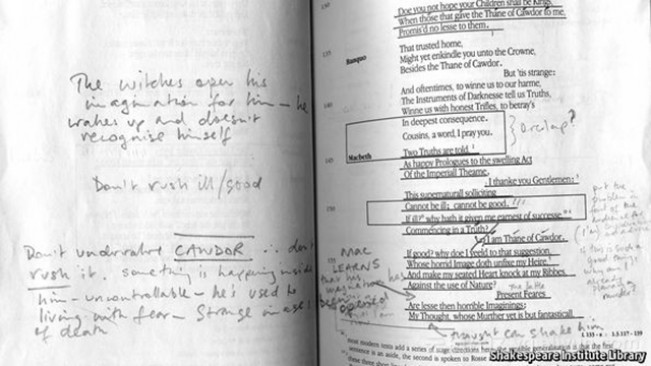 The witches open his
imagination for him – he
wakes up and doesn't
recognise himself
Don't rush ill/good
Don't undervalue CAWDOR ∴ don't
rush it, something is happening inside
him – uncontrollable – he's used to
living with fear – Strange images
of death
Doe you not hope your Children shall be Kings,
When those that gave the Thane of Cawdor to me,
Promis'd no lesse to them.
135
Banquo
That trusted home,
Might yet enkindle you unto the Crowne,
Besides the Thane of Cawdor.
But 'tis strange:
140
And oftentimes, to winne us to our harme,
The Instruments of Darknesse tell us Truths,
Winne us with honest Trifles, to betray's
In deepest consequence.
Cousins, a word, I pray you.
Overlap?
145
Macbeth
Two Truths are told,
As happy Prologues to the swelling Act
Of the Imperiall Theame.
I thanke you Gentlemen:
150
This supernaturall solliciting
Cannot be ill; cannot be good.
If ill? why hath it given me earnest of successe,
Commencing in a Truth?
I am Thane of Cawdor.
If good? why doe I yeeld to that suggestion,
Whose horrid Image doth unfixe my Heire,
And make my seated Heart knock at my Ribbes,
Against the use of Nature?
Present Feares
Are lesse then horrible Imaginings:
My Thought, whose Murther yet is but fantasticall,
MAC
LEARNS
that his
imagination has
been
opened
put the
problem in
thought can shake him
1.3.117 - 139
most modern texts add a series of stage directions here: the possible generalisation is that the first
sentence is an aside, the second is spoken to Rosse
Shakespeare Institute Library